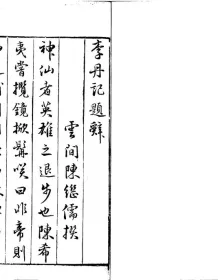 李丹記題辭
雲間陳繼儒撰
神仙者英雄之退步也陳希
夷嘗攬鏡掀髯咲曰非帝則